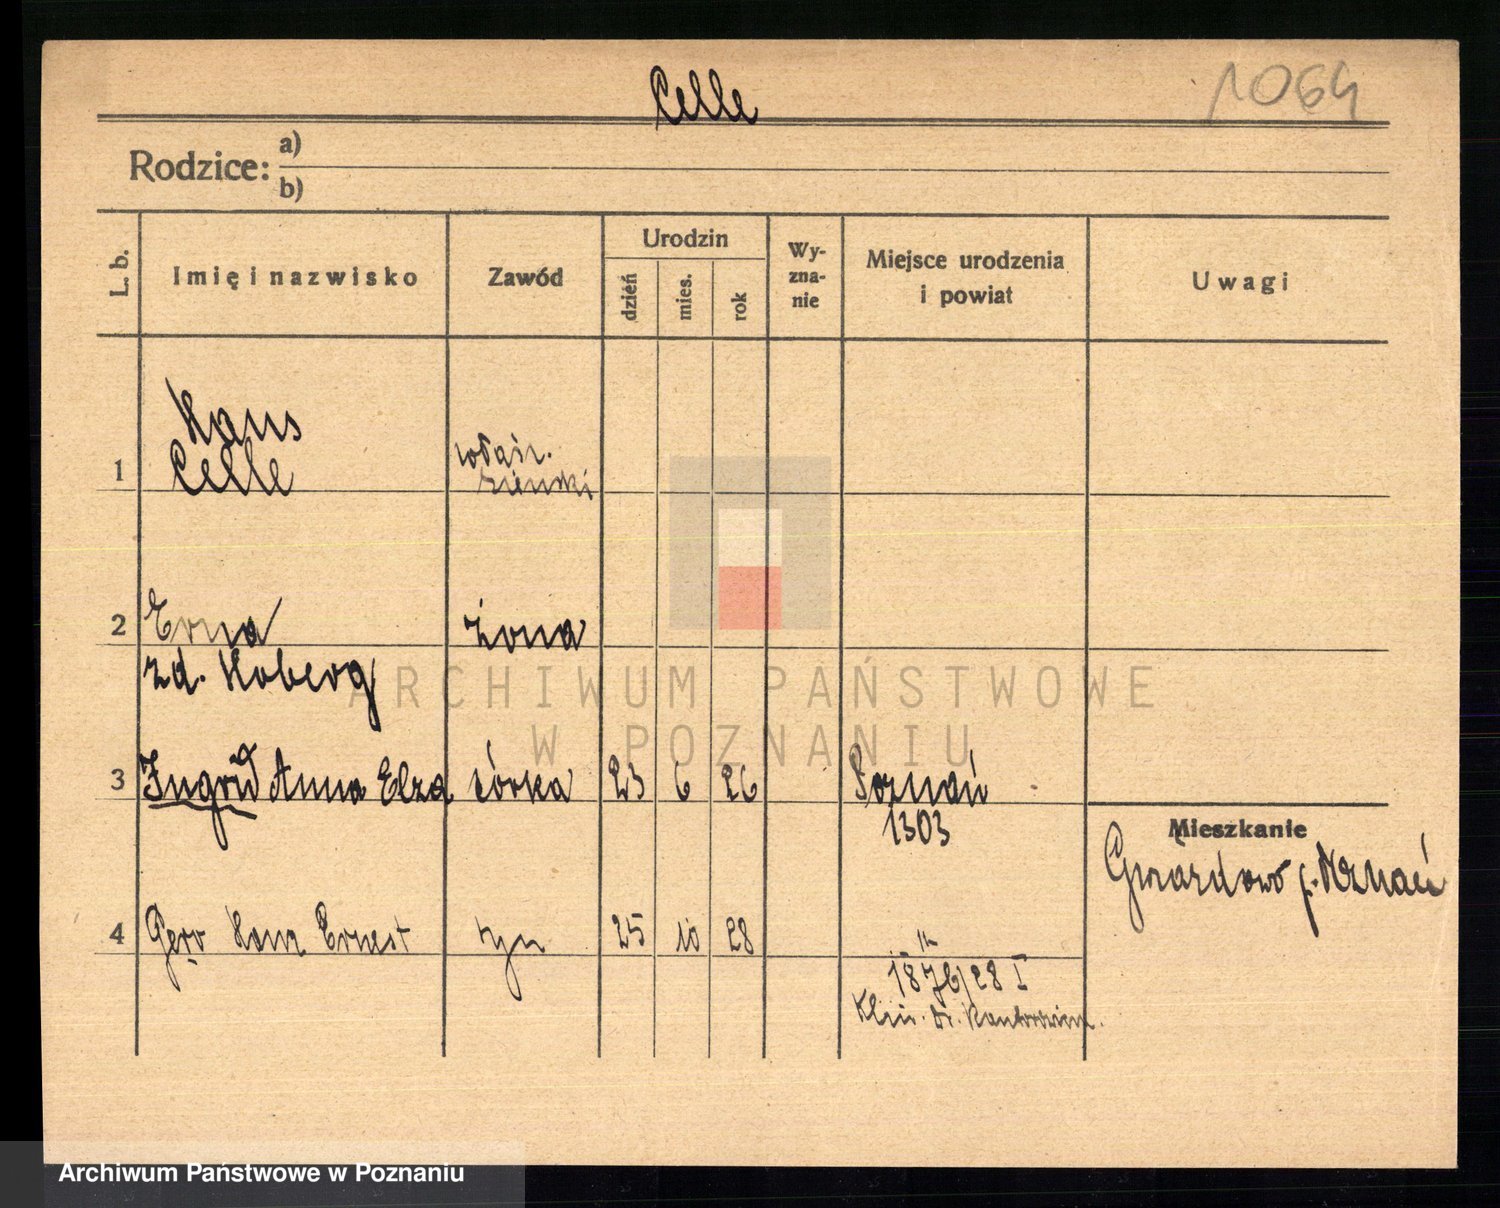 Celle
1064
Rodzice: a)
b)
L. b.
Imię i nazwisko
Zawód
Urodzin
dzień
mies.
rok
Wy-
zna-
nie
Miejsce urodzenia
i powiat
Uwagi
1
Hans
Celle
właśc.
ziemski
2
Erna
żona
zd. Koberg
3
Ingrid Anna Elza
córka
23
6
26
Poznań
1303
4
Gero Hans Ernest
syn
25
10
28
1876/28 I
Klin. Dr.
Mieszkanie
p. Poznań
ARCHIWUM PAŃSTWOWE
W POZNANIU
Archiwum Państwowe w Poznaniu